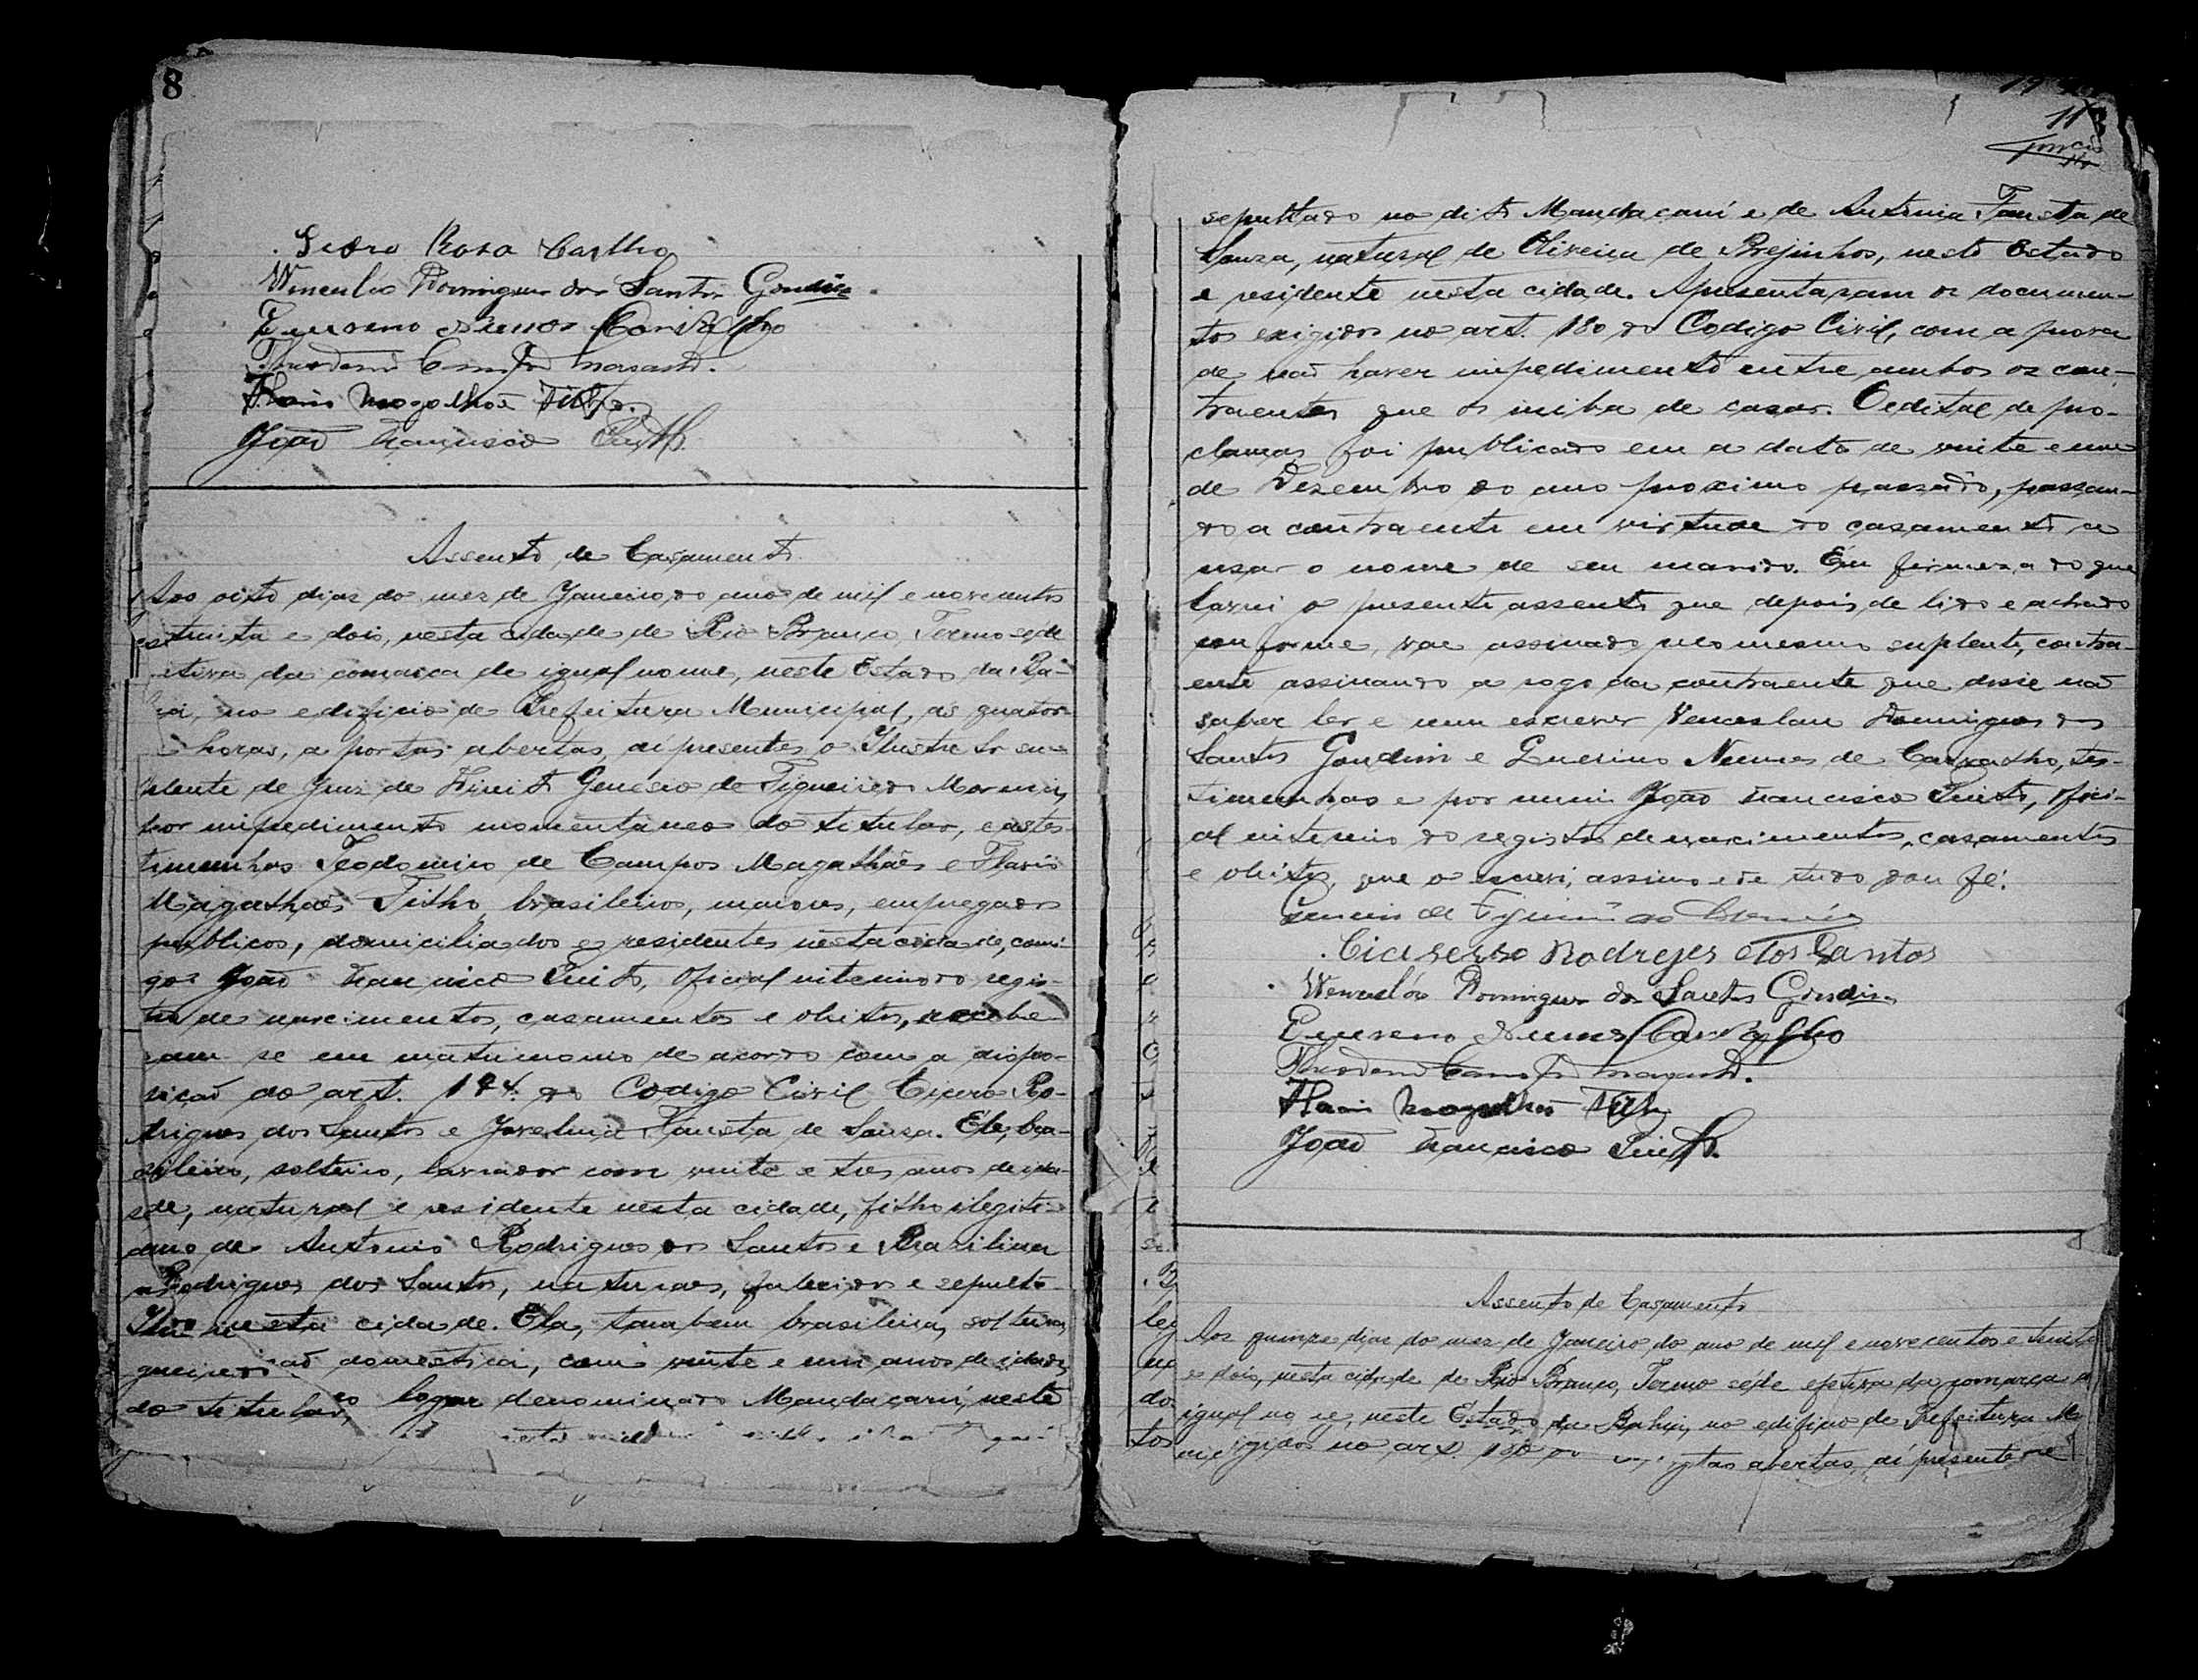 8
Pedro Rosa Castro
Wenceslao Domingues dos Santos Gondim
Guereno Nunes Carvalho
Flavio Magalhães Filho.
João Francisco Pinto.
Assento de Casamento
Aos oito dias do mez de Janeiro do ano de mil e novecentos
e trinta e dois, nesta cidade de Rio Branco, Termo séde
da comarca de igual nome, neste Estado da Ba-
no edificio de Prefeitura Municipal, ás quator-
horas, a portas abertas, aí presentes o Ilustre Sr. su-
plente de Juiz de Direito Genesio de Figueiredo
por impedimento momentaneo do titular, e as tes-
timunhas Teodomiro de Campos Magalhães e Flavio
Magalhães Filho, brasileiros, maiores, empregados
publicos, domiciliados e residentes nesta cidade, comi-
go João Francisco Pinto, oficial interino do regis-
tro de nascimentos, casamentos e obitos, recebe-
ram-se em matrimonio de acordo com a dispo-
sição do art. 194 do Codigo Civil Cicero Ro-
drigues dos Santos e Jovelina Fausta de Souza. Ele, bra-
sileiro, solteiro, lavrador com vinte e tres anos de ida-
de, natural e residente nesta cidade, filho ilegiti-
mo de Antonio Rodrigues dos Santos e Brazilina
Rodrigues dos Santos, naturaes, falecidos e sepulta-
nesta cidade. Ela, tambem brasileira, solteira,
domestica, com vinte e um anos de idade,
gueiredo
do titular, logar denominado Mandacarú, neste
113
sepultado no dito Mandacarú e de Antonia Fausta de
Souza, natural de Oliveira de Brejinhos, neste Estado
e residente nesta cidade. Apresentaram os documen-
tos exigidos no art. 180 do Codigo Civil, com a prova
de não haver impedimento entre ambos os con-
traentes que os iniba de casar. O edital de pro-
clamas foi publicado em a data de vinte e um
de Dezembro do ano proximo passado, passan-
do a contraente em virtude do casamento a
usar o nome de seu marido. Em firmeza do que
lavrei o presente assento que depois de lido e achado
conforme, vae assinado pelo mesmo suplente, contra-
ente assinando a rogo da contraente que disse não
saber ler e nem escrever Venceslau Domingues dos
Santos Gondim e Guerino Nunes de Carvalho, tes-
timunhas e por mim João Francisco Pinto, ofici-
al interino do registro de nascimentos, casamentos
e obitos, que o escrevi, assino e de tudo dou fé.
Genesio de Figueiredo
Cicersero Rodreges dos Santos
Wenceslao Domingues dos Santos Gondim
Guereno Nunes Carvalho
Flavio Magalhães Filho
João Francisco Pinto.
Assento de Casamento
Aos quinze dias do mez de Janeiro do ano de mil e novecentos e trinta
e dois, nesta cidade de Rio Branco, Termo séde efetiva da comarca de
igual nome, neste Estado da Bahia, no edificio de Prefeitura Mu
exigidos no art. 180 do portas abertas, aí presentes